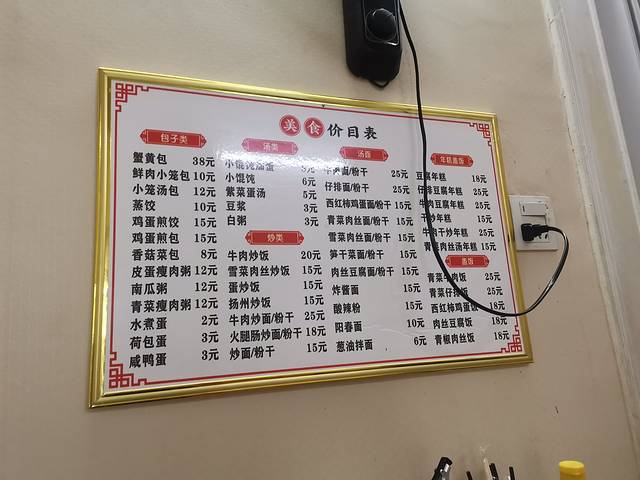 美食价目表
包子类
蟹黄包 38元
鲜肉小笼包 10元
小笼汤包 12元
蒸饺 10元
鸡蛋煎饺 15元
鸡蛋煎包 15元
香菇菜包 8元
皮蛋瘦肉粥 12元
南瓜粥 12元
青菜瘦肉粥 12元
水煮蛋 2元
荷包蛋 3元
咸鸭蛋 3元
汤类
小馄饨加蛋
小馄饨 6元
紫菜蛋汤 5元
豆浆 3元
白粥 3元
炒类
牛肉炒饭 20元
雪菜肉丝炒饭 15元
蛋炒饭 15元
扬州炒饭 15元
牛肉炒面/粉干 25元
火腿肠炒面/粉干 18元
炒面/粉干 15元
汤面
牛肉面/粉干 25元
仔排面/粉干 25元
西红柿鸡蛋面/粉干 15元
青菜肉丝面/粉干 15元
雪菜肉丝面/粉干 15元
笋干菜面/粉干 15元
肉丝豆腐面/粉干 15元
炸酱面 15元
酸辣粉 15元
阳春面 10元
葱油拌面 6元
年糕盖饭
豆腐年糕 18元
仔排豆腐年糕 25元
牛肉豆腐年糕 25元
干炒年糕 15元
牛肉干炒年糕 25元
青菜肉丝汤年糕 15元
盖饭
青菜牛肉饭 25元
青菜仔排饭 25元
西红柿鸡蛋饭 18元
肉丝豆腐饭 18元
青椒肉丝饭 18元